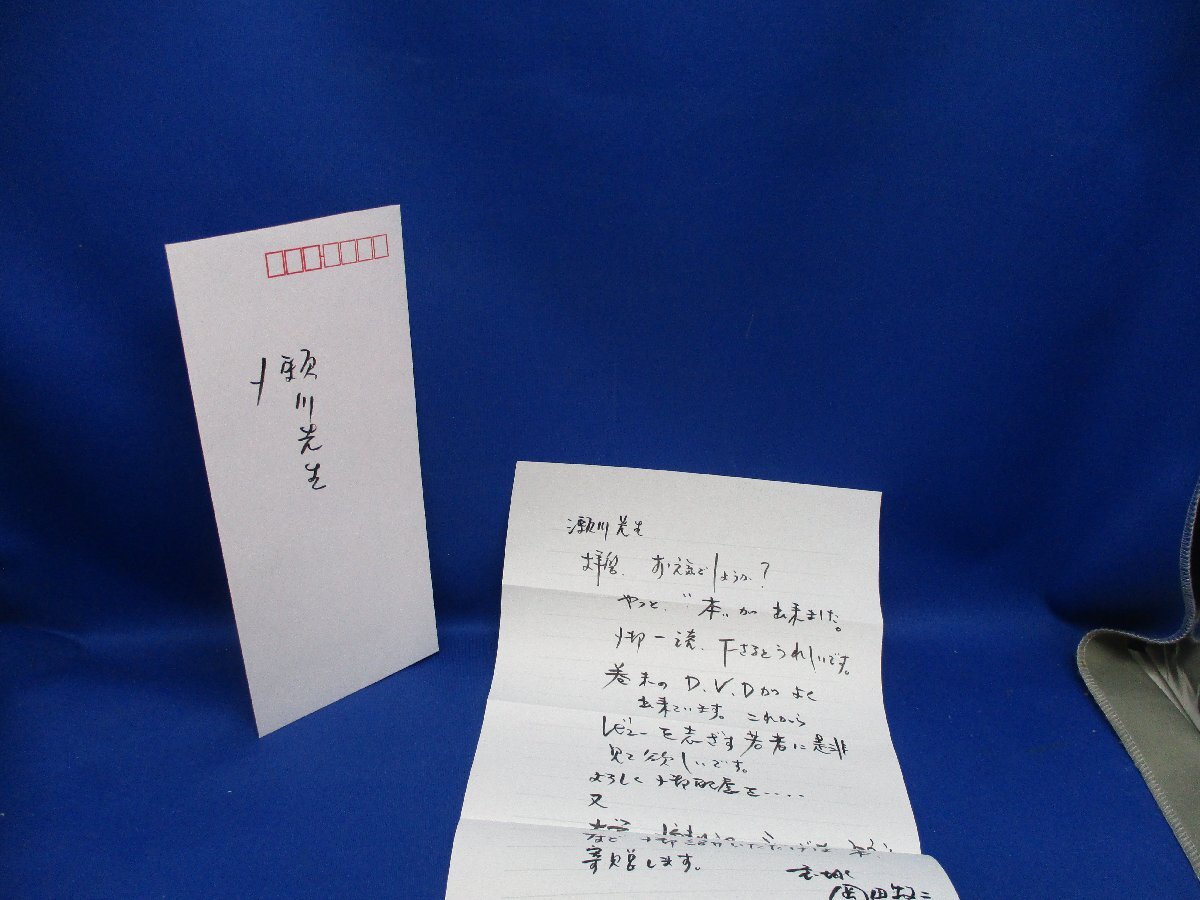 瀬川先生
瀬川先生
拝啓、お元気でしょうか?
やっと、"本"が出来ました。
御一読、下さるとうれしいです。
巻末のD.V.Dがよく
出来ています。これから
レビューを志ざす若者に是非
見て欲しいです。
よろしく御配慮を....
又
など御紹介いただければ
寄贈します。
岡田敬二